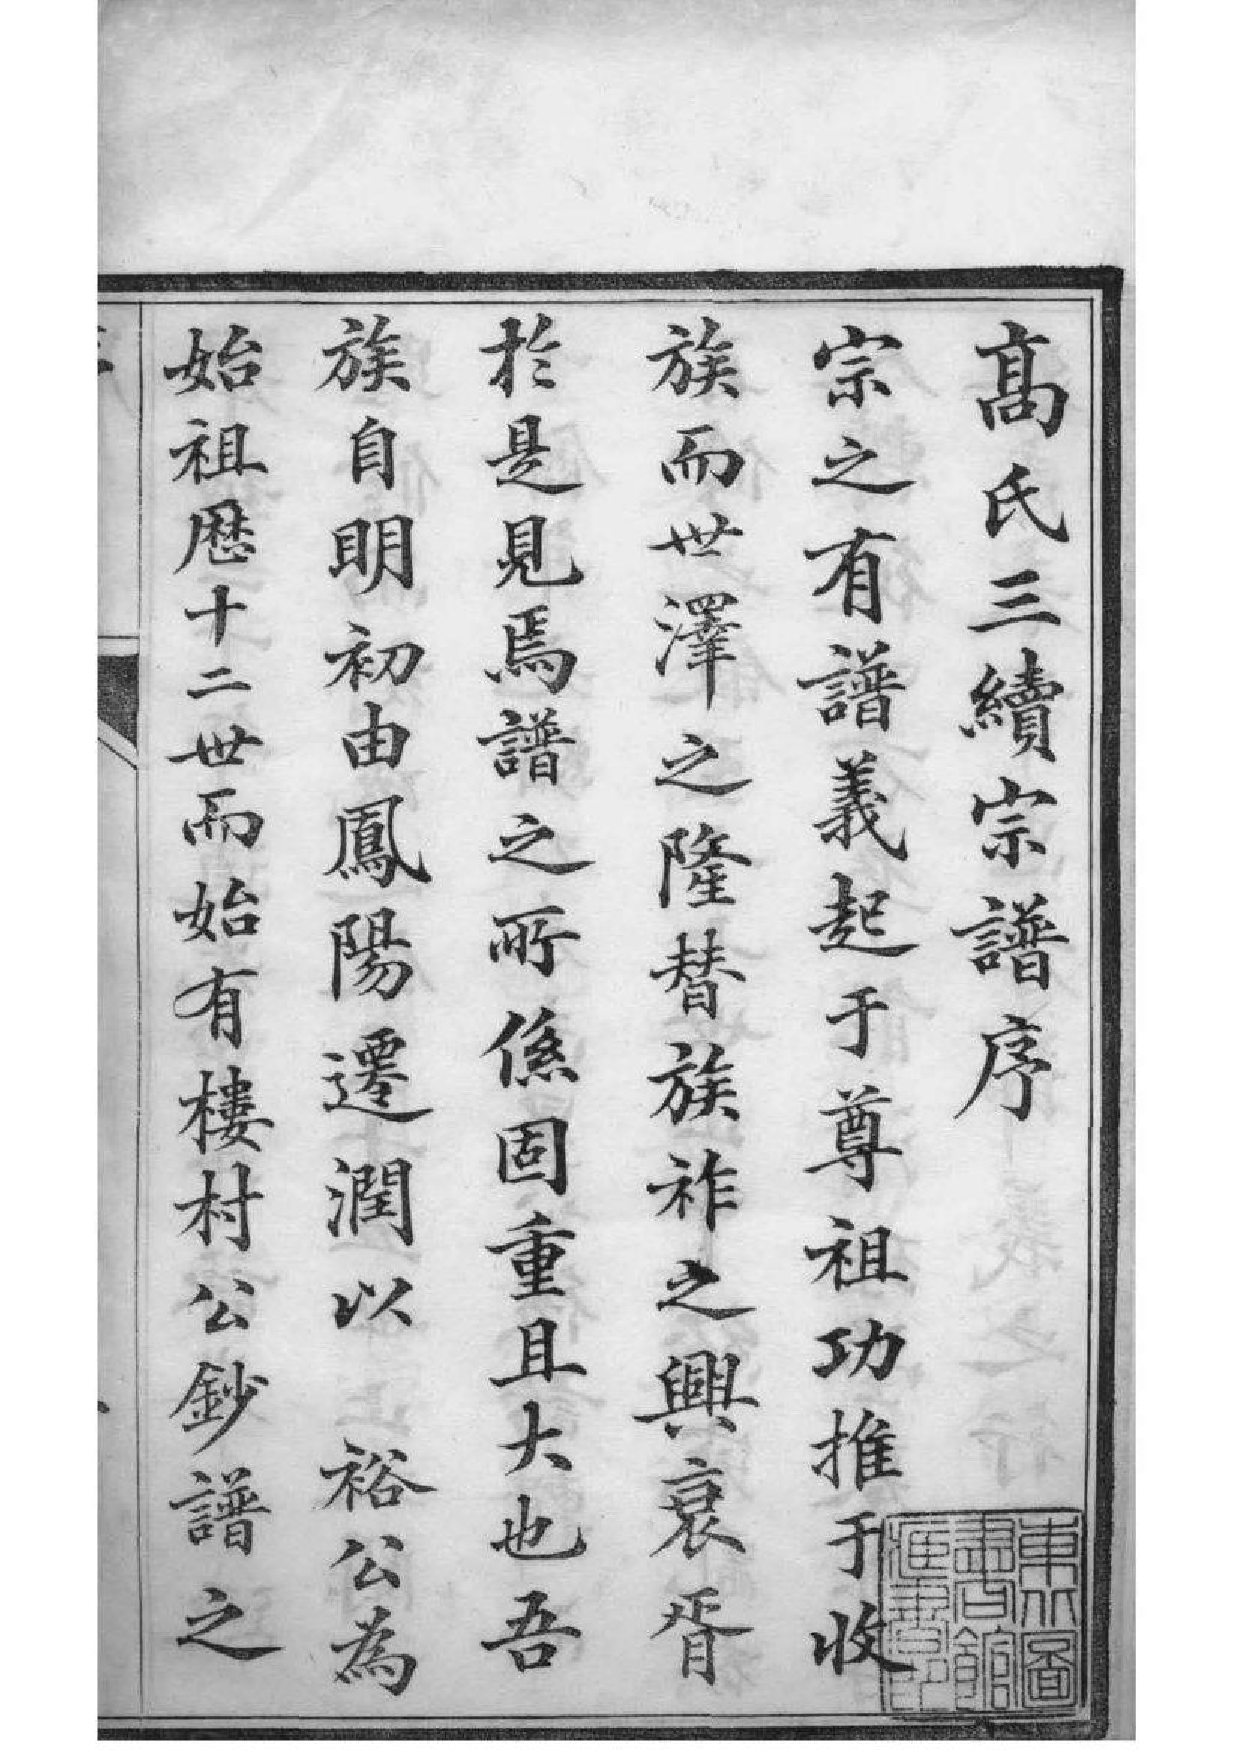 髙氏三續宗譜序
宗之有譜義起于尊祖功推于收
族而世澤之隆替族祚之興衰胥
於是見焉譜之所係固重且大也吾
族自明初由鳳陽遷潤以 裕公為
始祖歷十二世而始有樓村公鈔譜之
東北圖
書館